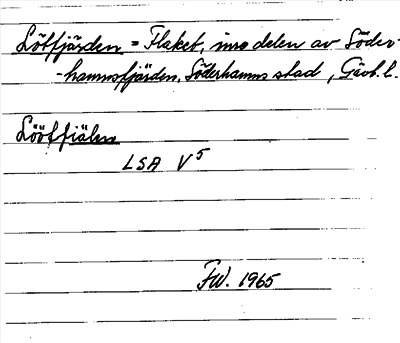 Lötfjärden = Flaket, inre delen av Söder-
-hamnsfjärden, Söderhamns stad, Gävl. l.
Lööffiälen
LSA V5
FW. 1965